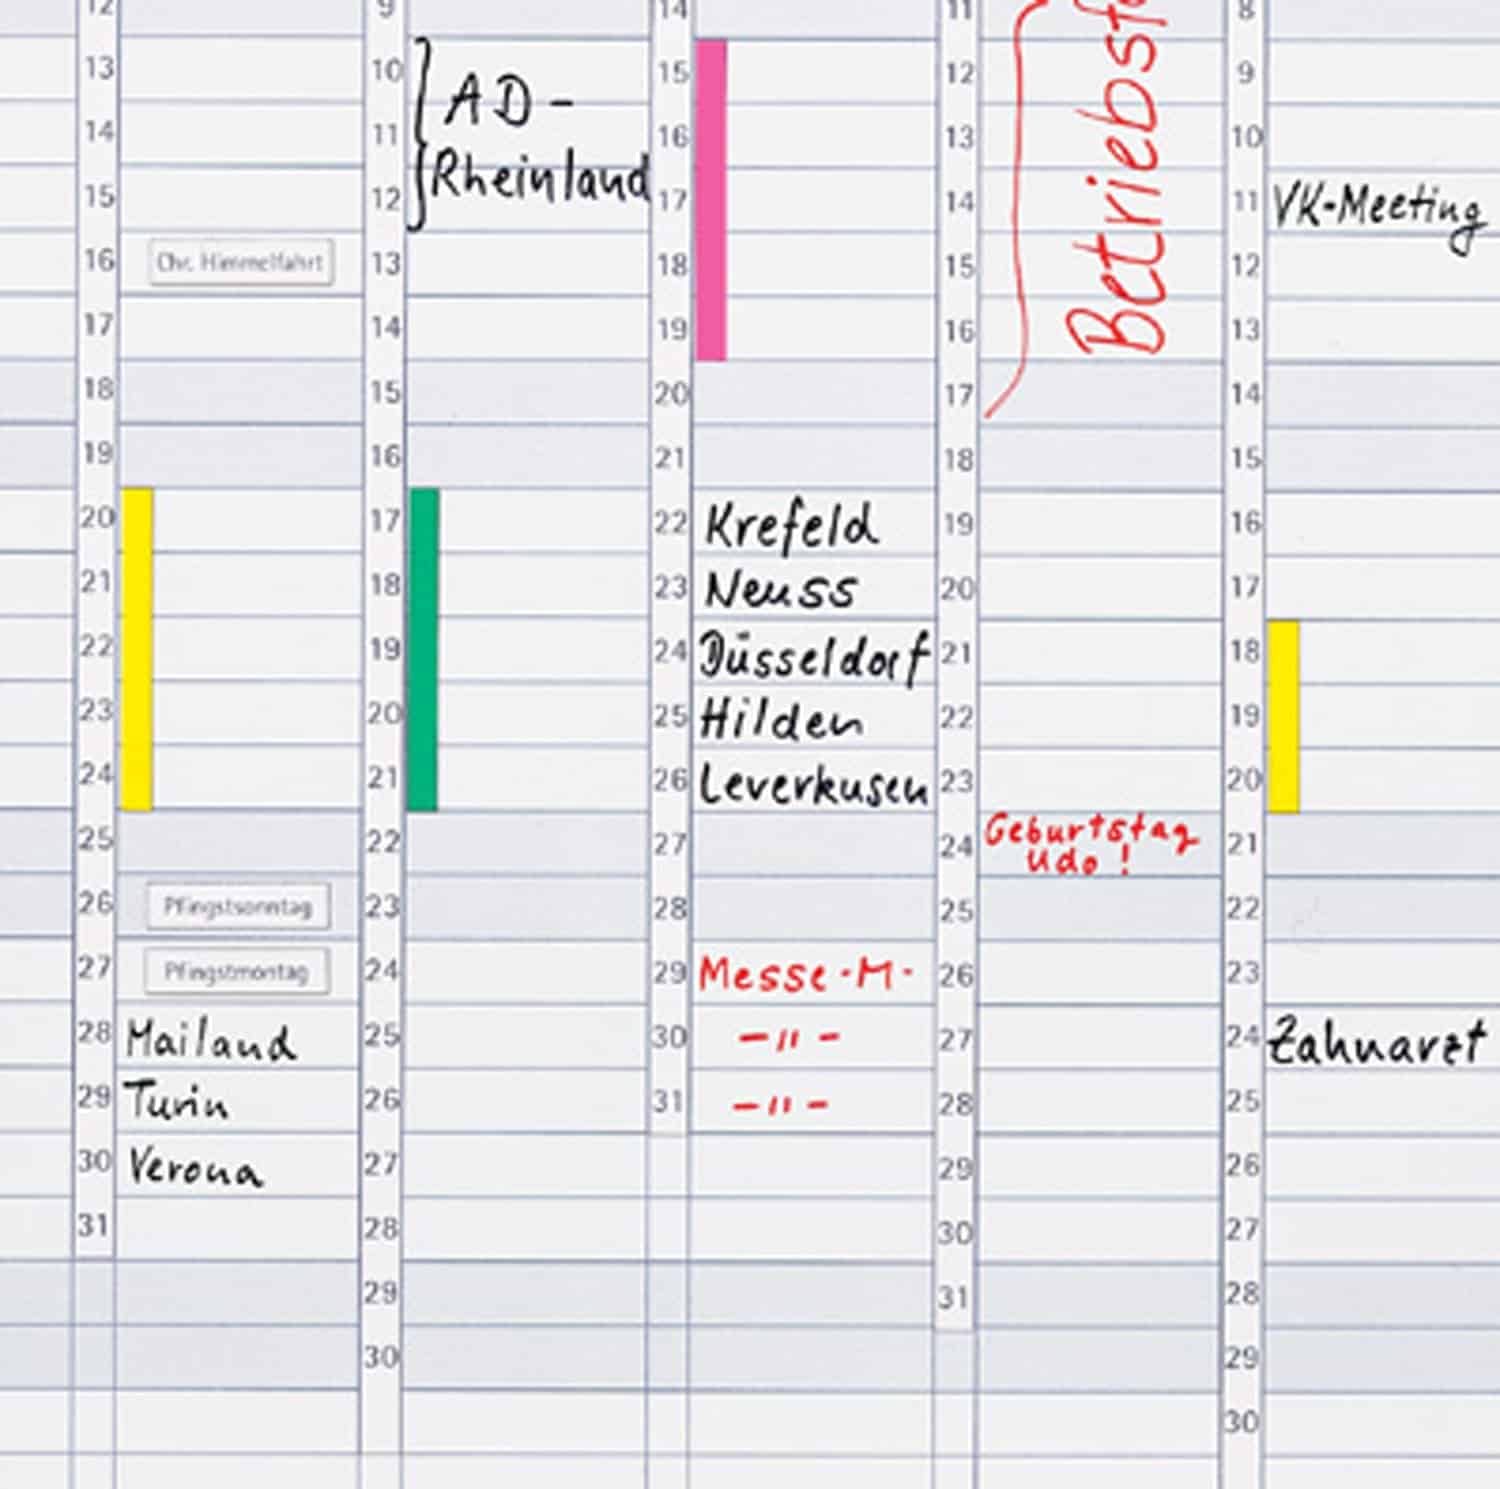 12
13
14
15
16 Chr. Himmelfahrt
17
18
19
20
21
22
23
24
25
26 Pfingstsonntag
27 Pfingstmontag
28 Mailand
29 Turin
30 Verona
31
9
10
AD-
11
Rheinland
12
13
14
15
16
17
18
19
20
21
22
23
24
25
26
27
28
29
30
14
15
16
17
18
19
20
21
22 Krefeld
23 Neuss
24 Düsseldorf
25 Hilden
26 Leverkusen
27
28
29 Messe-M-
30 -"-
31 -"-
11
12
13
14
15
16
17
18
19
20
21
22
23
24 Geburtstag
Udo!
25
26
27
28
29
30
31
8
9
10
11 VK-Meeting
12
13
14
15
16
17
18
19
20
21
22
23
24 Zahnarzt
25
26
27
28
29
30